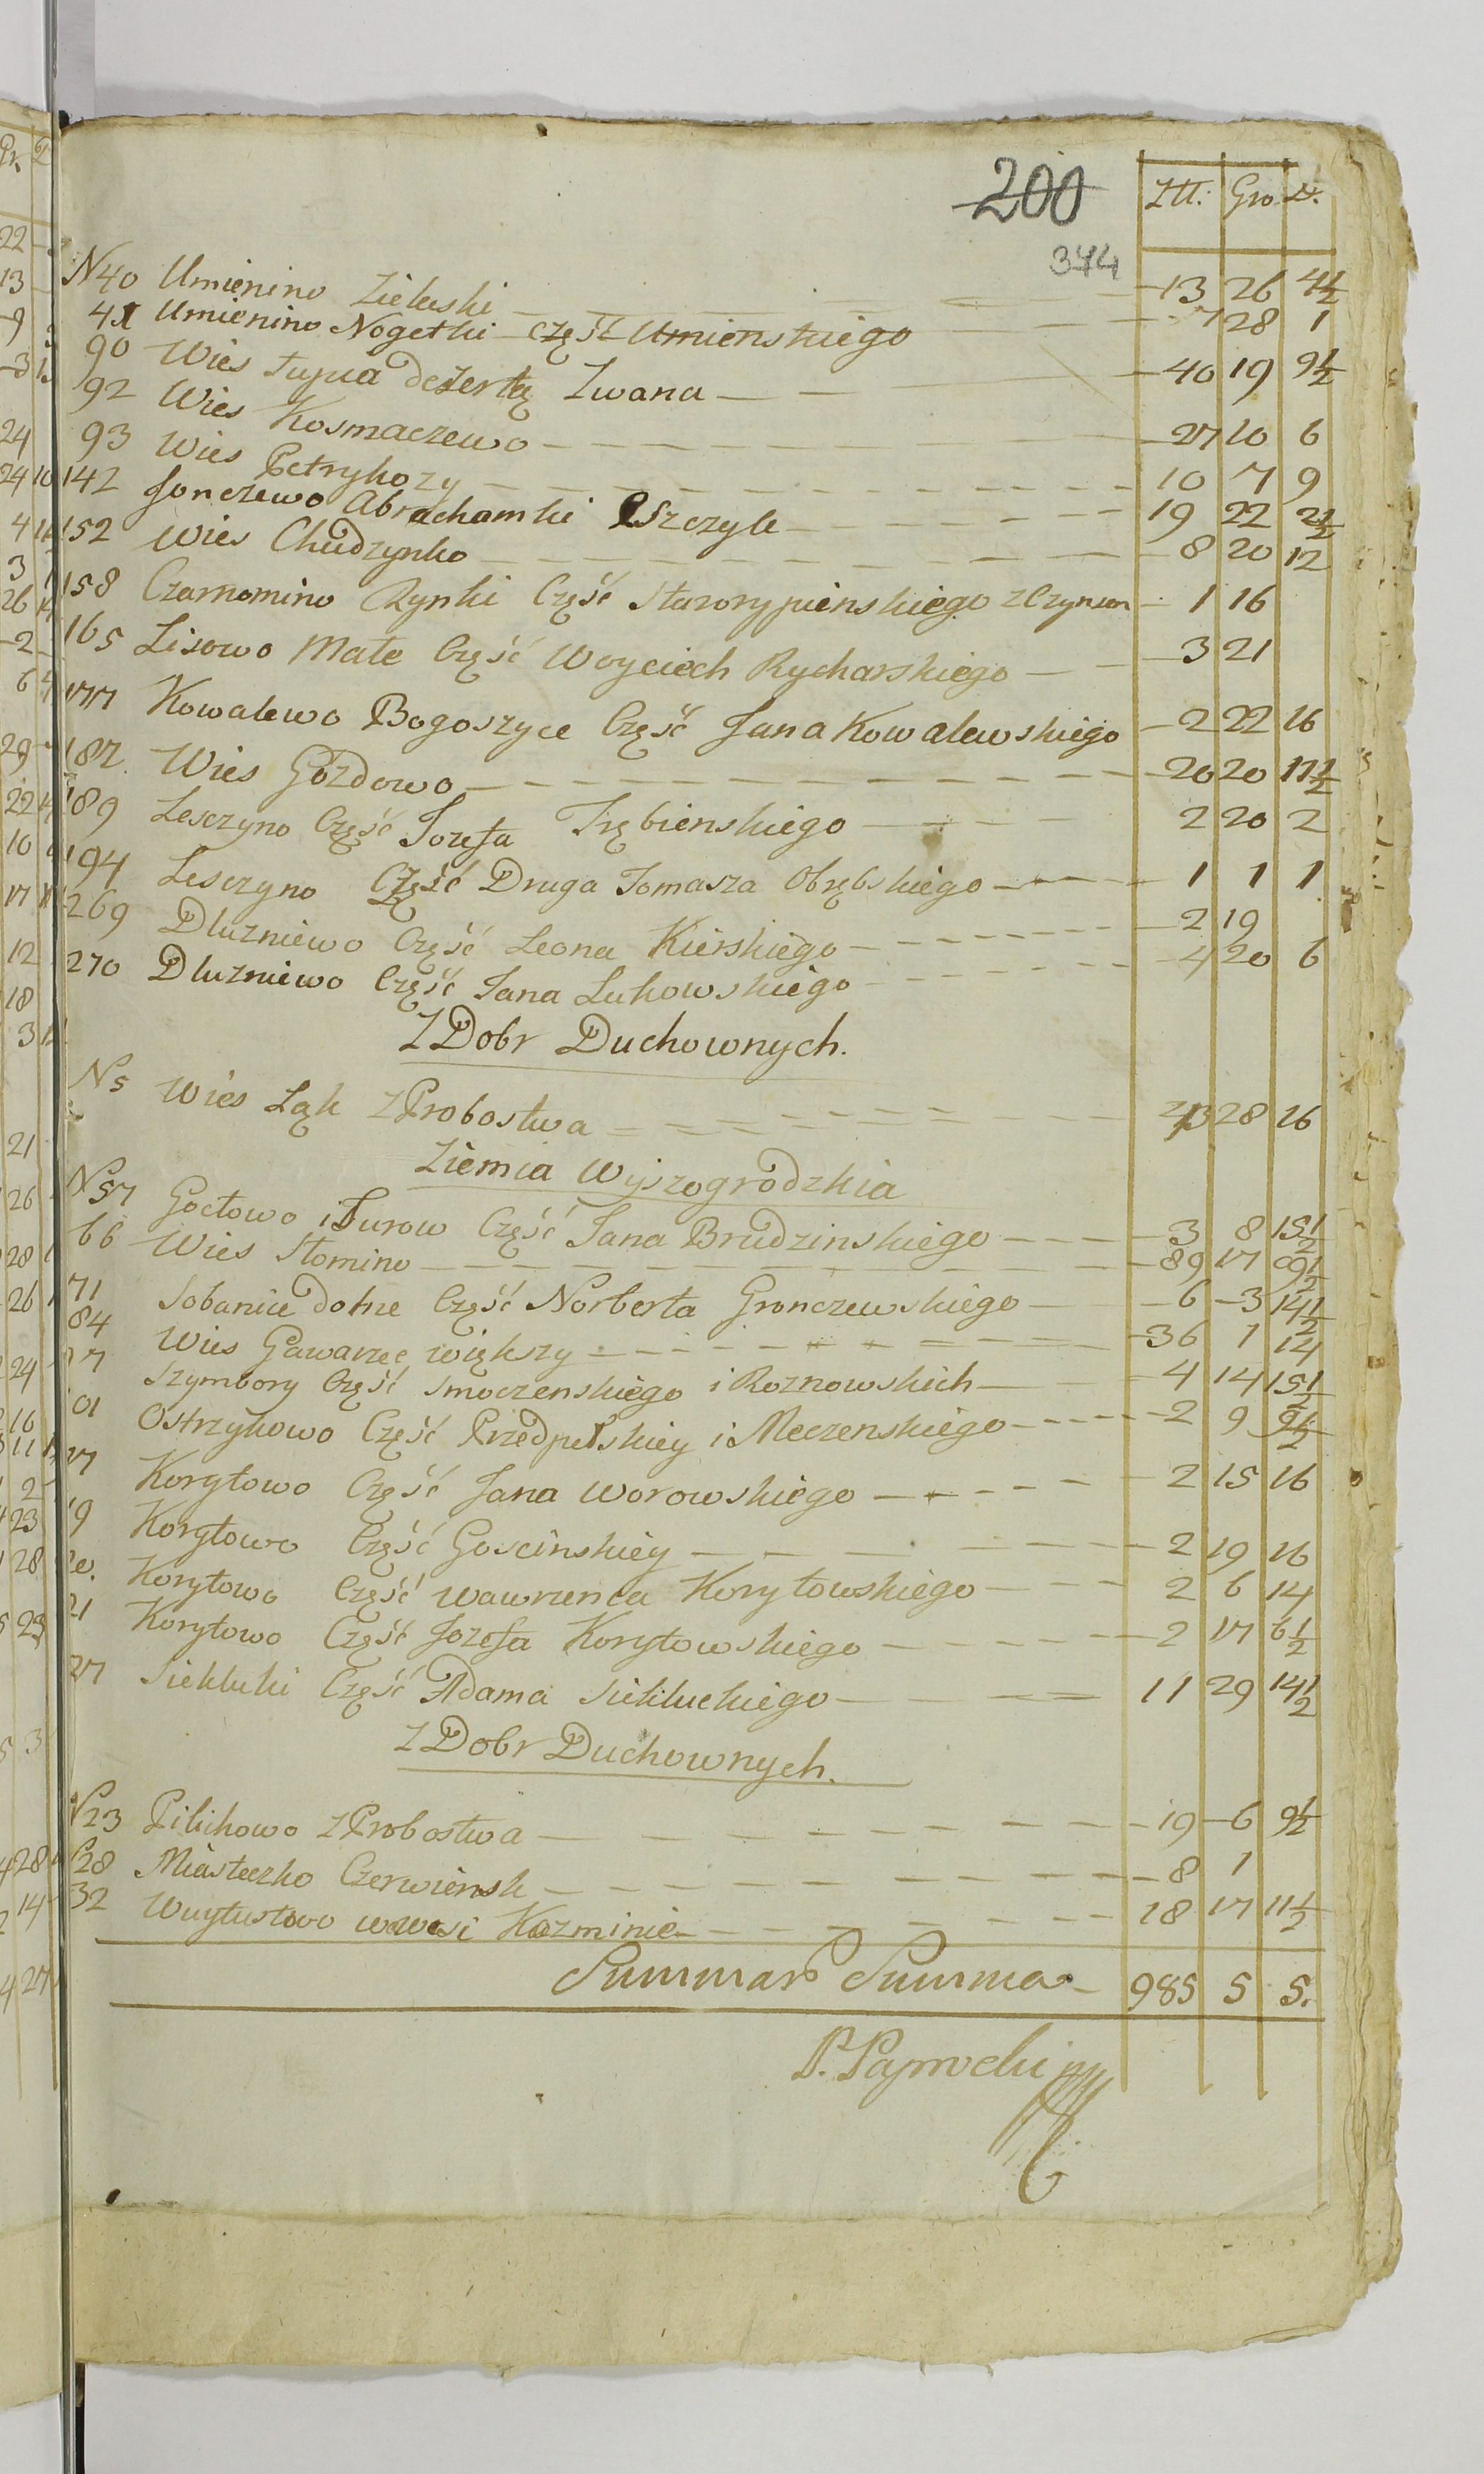 200
344
Złł. Gro D.
N40 Umienino Zieluski 13 26 4½
41 Umienino Nogetki część Umienskiego 7 28 1
90 Wies Łupia dezertą Zwana 40 19 9½
92 Wies Kosmaczewo 27 10 6
93 Wies Petrykozy 10 7 9
142 Jonczewo Abrachamki Pszczyle 19 22 2½
152 Wies Chudzynko 8 20 12
158 Czarnomino Rynki Część Starorypienskiego z Czynsem 1 16
165 Lisowo Małe Część Woyciech Rycharskiego 3 21
177 Kowalewo Bogoszyce Część Jana Kowalewskiego 2 22 16
187 Wies Gozdowo 20 20 17½
189 Lesczyno Część Jozefa Trębienskiego 2 20 2
194 Lesczyno Część Druga Tomasza Obrębskiego 1 1 1
269 Dluzniewo Część Leona Kierskiego 2 19
270 Dluzniewo Część Jana Lukowskiego 4 20 6
Z Dobr Duchownych.
N5 Wies Łąk z Probostwa 28 16
Ziemia Wyszogrodzkia
N57 Goctowo i Turow Część Jana Brudzinskiego 3 8 15½
66 Wies Słomino 89 17 09½
71 Sobanice dolne Część Norberta Gronczewskiego 6 3 14½
84 Wies Gawarzec większy 36 1 14
7 Szymbory Część Smoczenskiego i Roznowskich 4 14 15½
01 Ostrzykowo Część Przedpełskiey i Meczenskiego 2 9 9½
17 Korytowo Część Jana Worowskiego 2 15 16
19 Korytowo Część Goscinskiey 2 19 16
20. Korytowo Część Wawrzenca Korytowskiego 2 6 14
21 Korytowo Część Jozefa Korytowskiego 2 17 6½
27 Siekluki Część Adama Siekluckiego 11 29 14½
Z Dobr Duchownych.
N23 Pilichowo z Probostwa 19 6 9½
28 Miasteczko Czerwiensk 8 1
32 Wuytustwo wewsi Kozminie 18 17 11½
Summar Summa 985 5 5.